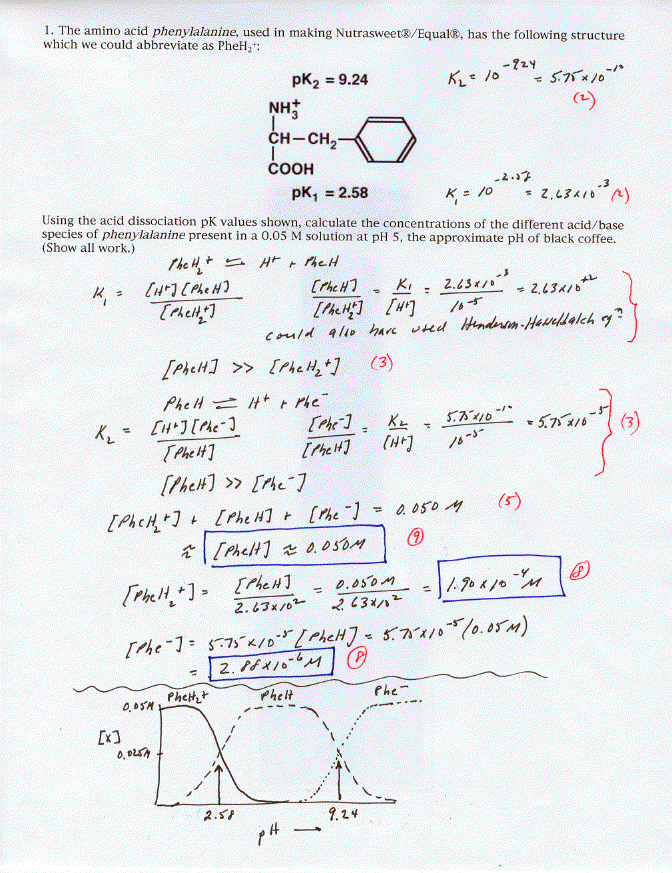 1. The amino acid phenylalanine, used in making Nutrasweet®/Equal®, has the following structure
which we could abbreviate as PheH₂⁺:
pK₂ = 9.24
K₂ = 10^-9.24 = 5.75 x 10^-10
(2)
NH₃⁺
CH–CH₂–
COOH
pK₁ = 2.58
K₁ = 10^-2.58 = 2.63 x 10^-3 (2)
Using the acid dissociation pK values shown, calculate the concentrations of the different acid/base
species of phenylalanine present in a 0.05 M solution at pH 5, the approximate pH of black coffee.
(Show all work.)
PheH₂⁺ ⇌ H⁺ + PheH
K₁ = [H⁺][PheH] / [PheH₂⁺]   [PheH] / [PheH₂⁺] = K₁ / [H⁺] = 2.63 x 10^-3 / 10^-5 = 2.63 x 10^+2
could also have used Henderson-Hasselbalch eqn
[PheH] >> [PheH₂⁺] (3)
PheH ⇌ H⁺ + Phe⁻
K₂ = [H⁺][Phe⁻] / [PheH]   [Phe⁻] / [PheH] = K₂ / [H⁺] = 5.75 x 10^-10 / 10^-5 = 5.75 x 10^-5 (3)
[PheH] >> [Phe⁻]
[PheH₂⁺] + [PheH] + [Phe⁻] = 0.050 M (5)
≈ [PheH] ≈ 0.050M (9)
[PheH₂⁺] = [PheH] / 2.63 x 10^2 = 0.050 M / 2.63 x 10^2 = 1.90 x 10^-4 M (8)
[Phe⁻] = 5.75 x 10^-5 [PheH] = 5.75 x 10^-5 (0.05 M)
= 2.88 x 10^-6 M (8)
PheH₂⁺ PheH Phe⁻
0.05M
[x]
0.025M
2.58 9.24
pH →